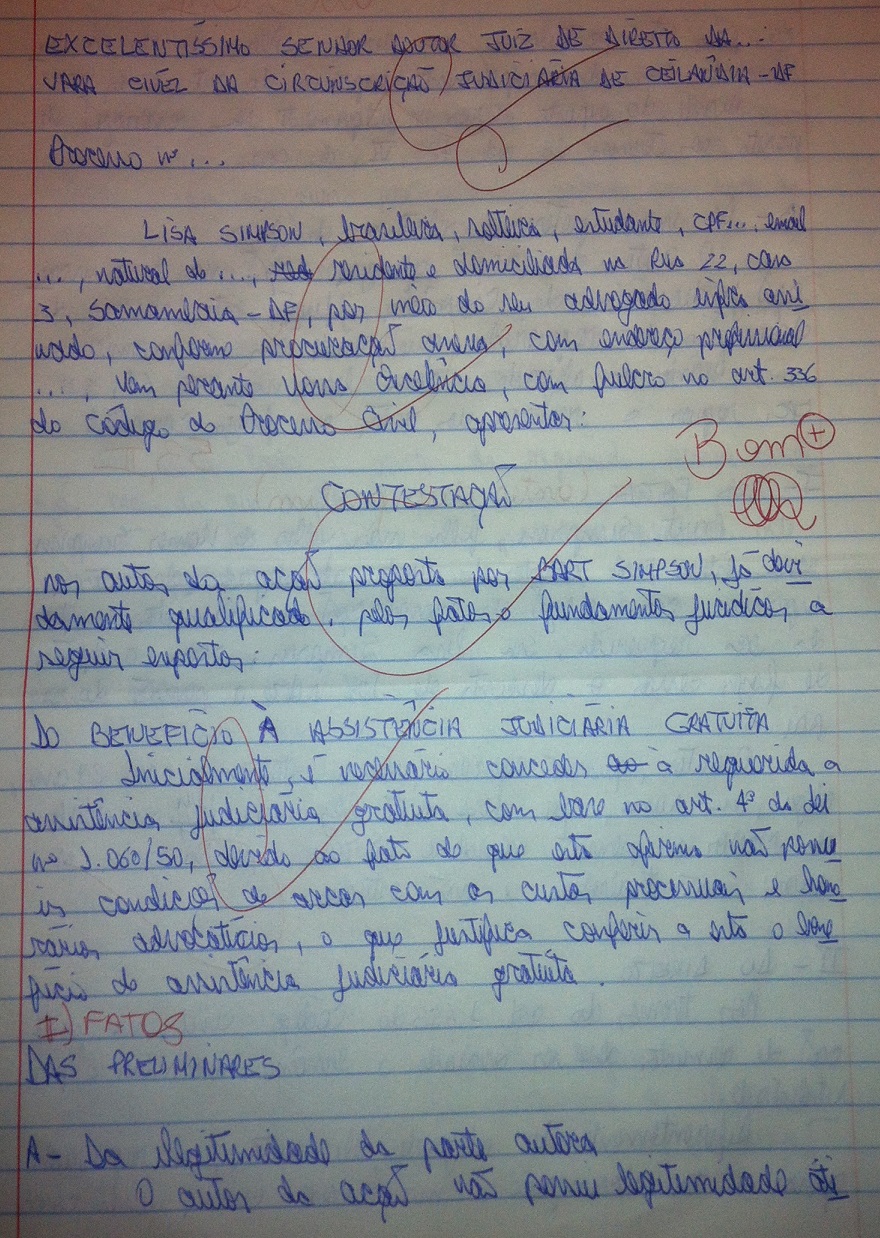 EXCELENTÍSSIMO SENHOR DOUTOR JUIZ DE DIREITO DA...
VARA CIVEL DA CIRCUNSCRIÇÃO JUDICIÁRIA DE CEILANDIA - DF
Processo nº ...
LISA SIMPSON, brasileira, solteira, estudante, CPF..., email
..., natural de ..., residente e domiciliada na Rua 22, casa
3, Samambaia - DF, por meio do seu advogado infra assi
nado, conforme procuração anexa, com endereço profissional
..., vem perante Vossa Excelência, com fulcro no art. 336
do Código de Processo Civil, apresentar:
Bom +
CONTESTAÇÃO
nos autos da ação proposta por BART SIMPSON, já devi
damente qualificado, pelos fatos e fundamentos jurídicos a
seguir expostos:
DO BENEFÍCIO À ASSISTÊNCIA JUDICIÁRIA GRATUITA
Inicialmente, é necessário conceder à requerida a
assistência judiciária gratuita, com base no art. 4º da Lei
nº 1.060/50, devido ao fato de que esta afirma não possu
ir condições de arcar com as custas processuais e hono
rários advocatícios, o que justifica conferir a esta o bene
fício de assistência judiciária gratuita.
I) FATOS
DAS PRELIMINARES
A - Da ilegitimidade da parte autora
O autor da ação não possui legitimidade ati